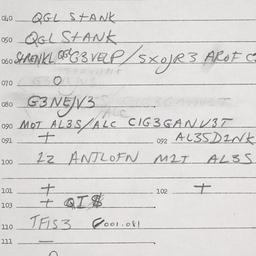 040 QGL StANK
050 QGL StANK
060 G3VELP/SXOJR3 AROF C
070 O
080 G3NEJV3
090 MOT AL3S/ALC CIG3GANV3T
091 + 092 AL3SD2NK
100 22 ANTLOFN M2T AL3S
101 + 102 +
103 + QI$
110 TFIS3 001.081
111 —